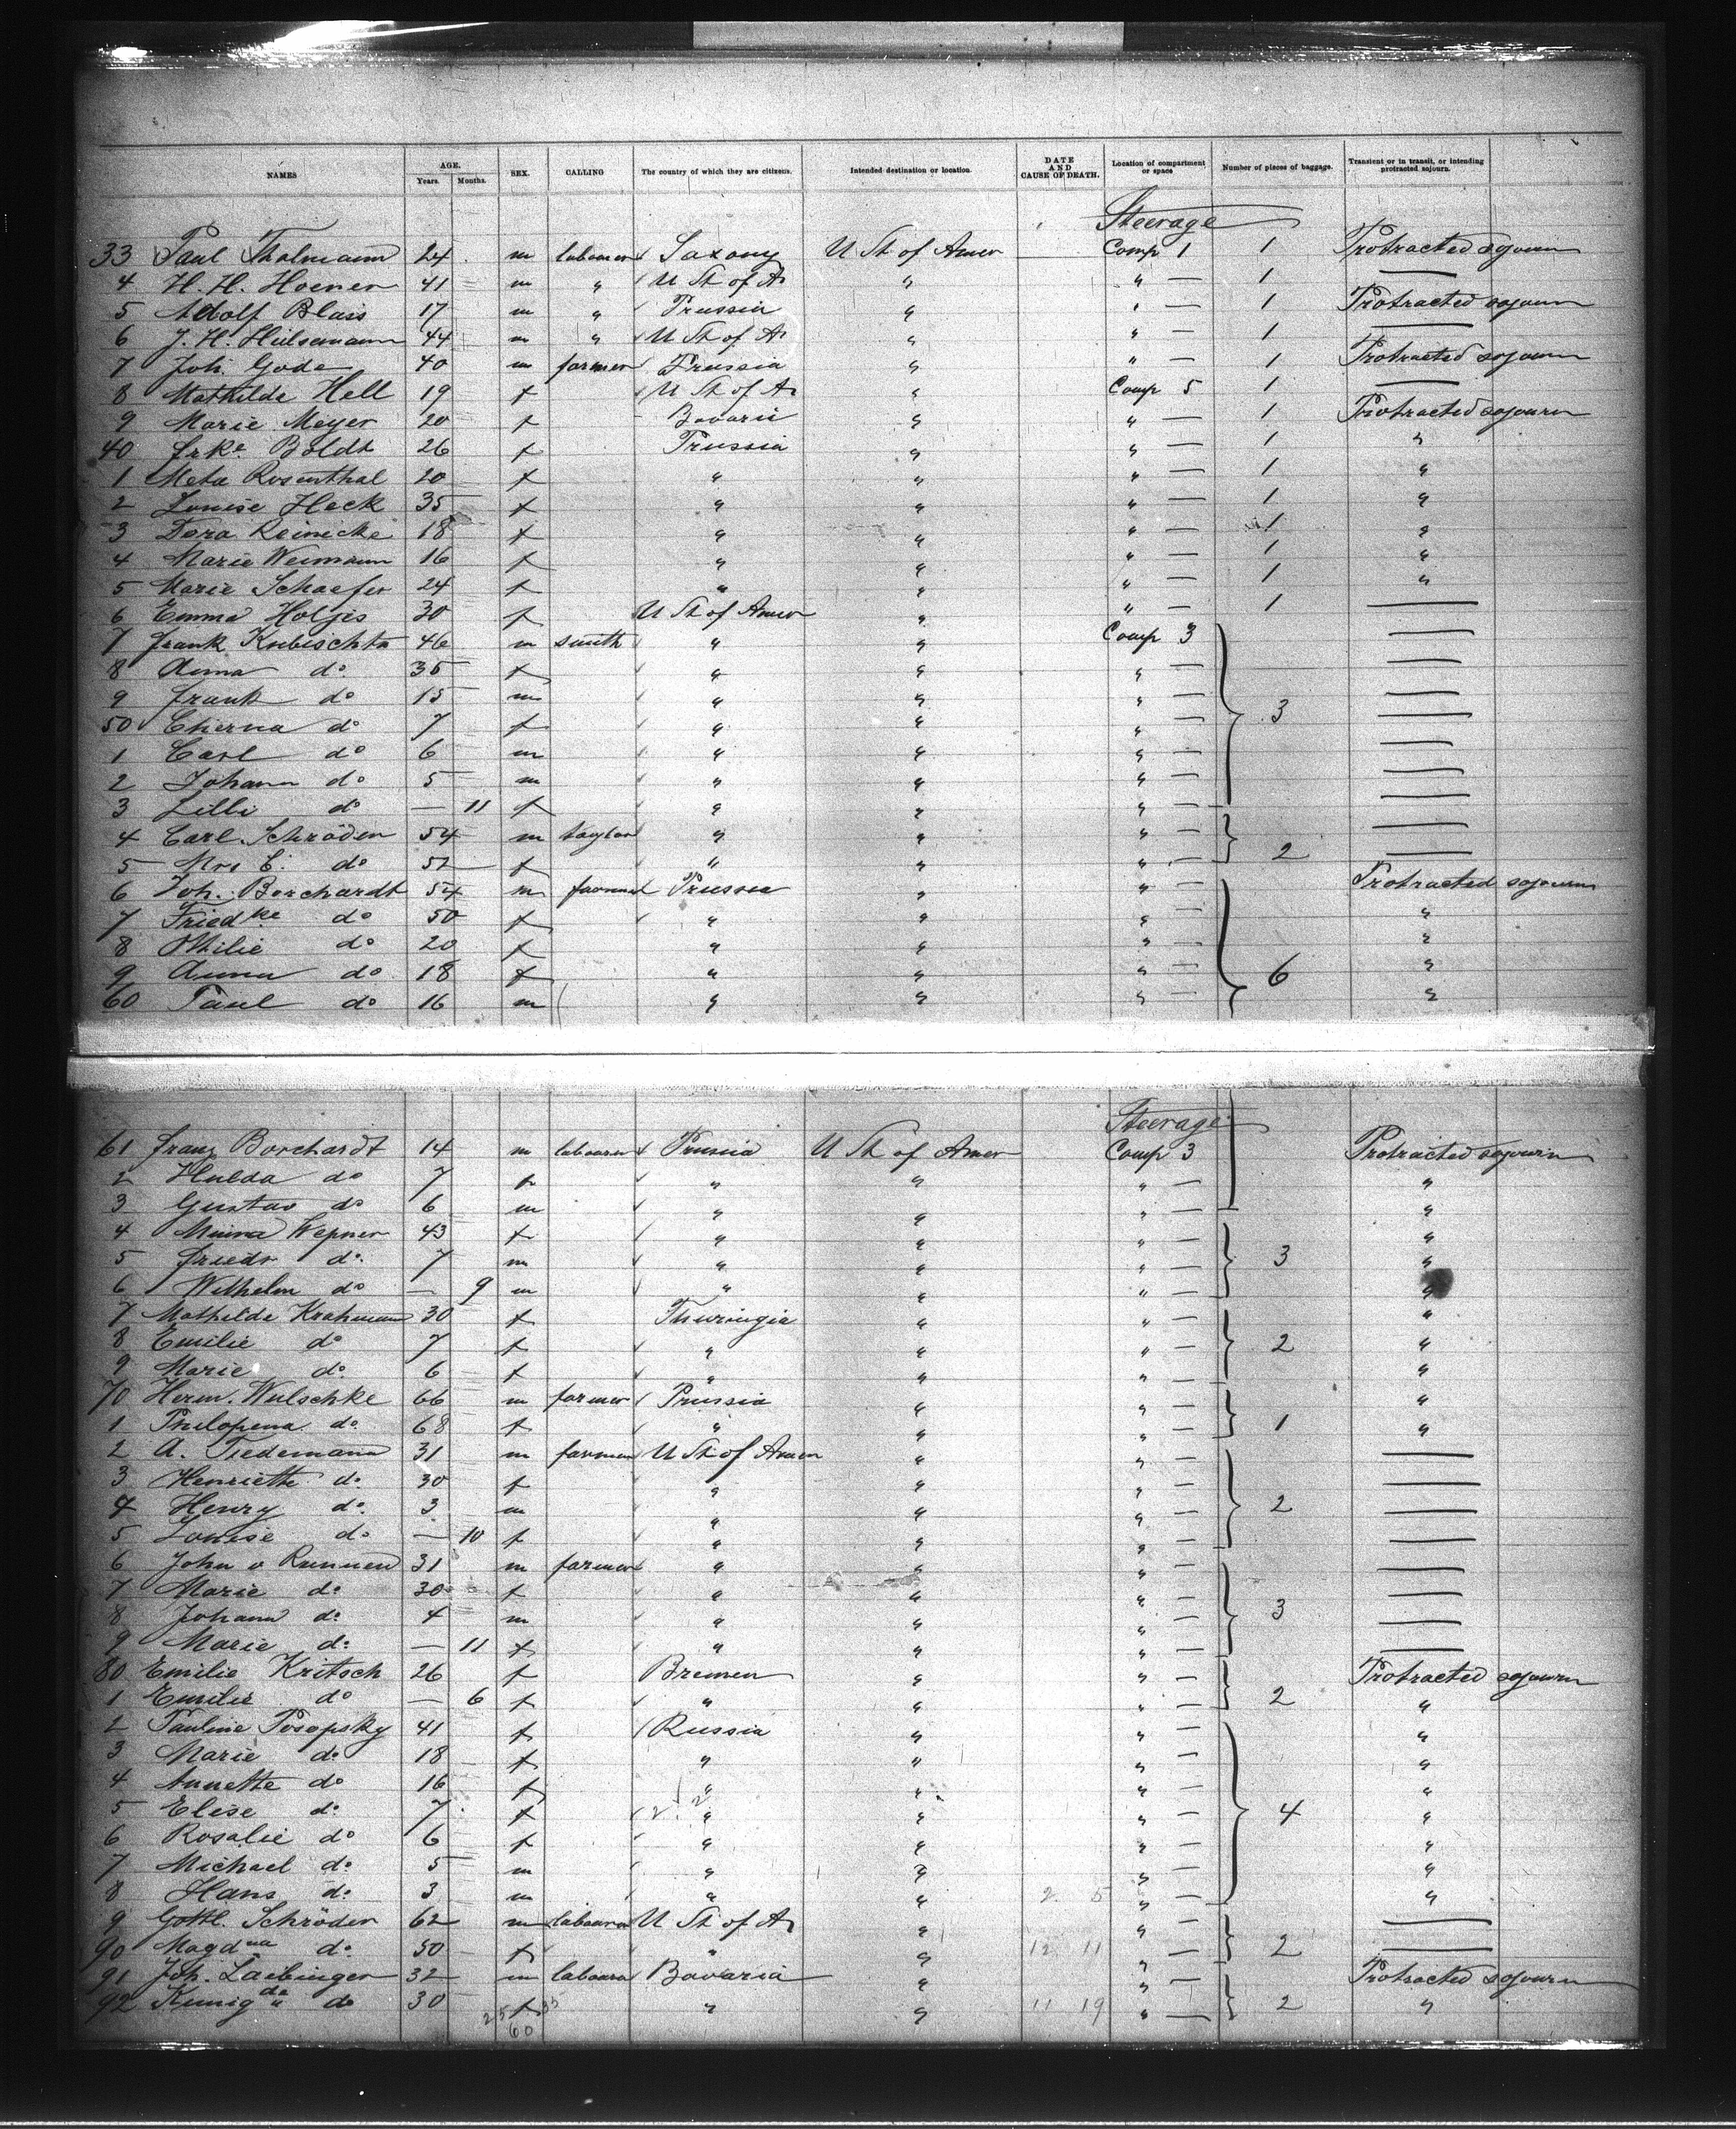 NAMES AGE. Years. Months. SEX. CALLING The country of which they are citizens. Intended destination or location DATE AND CAUSE OF DEATH. Location of compartment or space Number of pieces of baggage. Transient or in transit, or intending protracted sojourn.
Steerage
33 Paul Thalmann 24 m labourer Saxony U St of Amer Comp 1 1 Protracted sojourn
4 H. H. Hoener 41 m " U St of A " " — 1 —
5 Adolf Blass 17 m " Prussia " " — 1 Protracted sojourn
6 J. H. Hülsemann 44 m " U St of A " " — 1 —
7 Joh. Gode 40 m farmer Prussia " " — 1 Protracted sojourn
8 Mathilde Hell 19 f U St of A " Comp 5 1 —
9 Marie Meyer 20 f Bavaria " " — 1 Protracted sojourn
40 Frke Boldt 26 f Prussia " " — 1 "
1 Meta Rosenthal 20 f " " " — 1 "
2 Louise Heck 35 f " " " — 1 "
3 Dora Reinicke 18 f " " " — 1 "
4 Marie Weimann 16 f " " " — 1 "
5 Marie Schaefer 24 f " " " — 1 "
6 Emma Holjes 30 f U St of Amer " " — 1 —
7 Frank Kubischta 46 m smith " " Comp 3 —
8 Anna do 35 f " " " — —
9 Frank do 15 m " " " — 3 —
50 Cherna do 7 f " " " — —
1 Carl do 6 m " " " — —
2 Johann do 5 m " " " — —
3 Lilli do — 11 f " " " — —
4 Carl Schröder 54 m taylor " " " — —
5 Mrs C. do 52 f " " " — 2 —
6 Joh. Borchardt 54 m farmer Prussia " " — Protracted sojourn
7 Friedke do 50 f " " " — "
8 Othilie do 20 f " " " — "
9 Anna do 18 f " " " — 6 "
60 Paul do 16 m " " " — "
Steerage
61 Franz Borchardt 14 m labourer Prussia U St of Amer Comp 3 Protracted sojourn
2 Hulda do 7 f " " " — "
3 Gustav do 6 m " " " — "
4 Minna Wepner 43 f " " " — "
5 Friedr do 7 m " " " — 3 "
6 Wilhelm do — 9 m " " " — "
7 Mathilde Krahmann 30 f Thuringia " " — "
8 Emilie do 7 f " " " — 2 "
9 Marie do 6 f " " " — "
70 Herm. Wulschke 66 m farmer Prussia " " — "
1 Philopena do 68 f " " " — 1 "
2 A. Tiedemann 31 m farmer U St of Amer " " — —
3 Henriette do 30 f " " " — —
4 Henry do 3 m " " " — 2 —
5 Louise do — 10 f " " " — —
6 John v Runnen 31 m farmer " " " — —
7 Marie do 30 f " " " — —
8 Johann do 4 m " " " — 3 —
9 Marie do — 11 f " " " — —
80 Emilie Kritsch 26 f Bremen " " — Protracted sojourn
1 Emilie do — 6 f " " " — 2 "
2 Pauline Posopsky 41 f Russia " " — "
3 Marie do 18 f " " " — "
4 Annette do 16 f " " " — "
5 Elise do 7 f " " " — 4 "
6 Rosalie do 6 f " " " — "
7 Michael do 5 m " " " — "
8 Hans do 3 m " " 2 5 " — "
9 Gottl. Schröder 62 m labourer U St of A " " — —
90 Magdna do 50 f " " 12 11 " — 2 —
91 Joh. Laibinger 32 m labourer Bavaria " " — Protracted sojourn
92 Kunigda do 30 f " " 11 19 " — 2 "
60